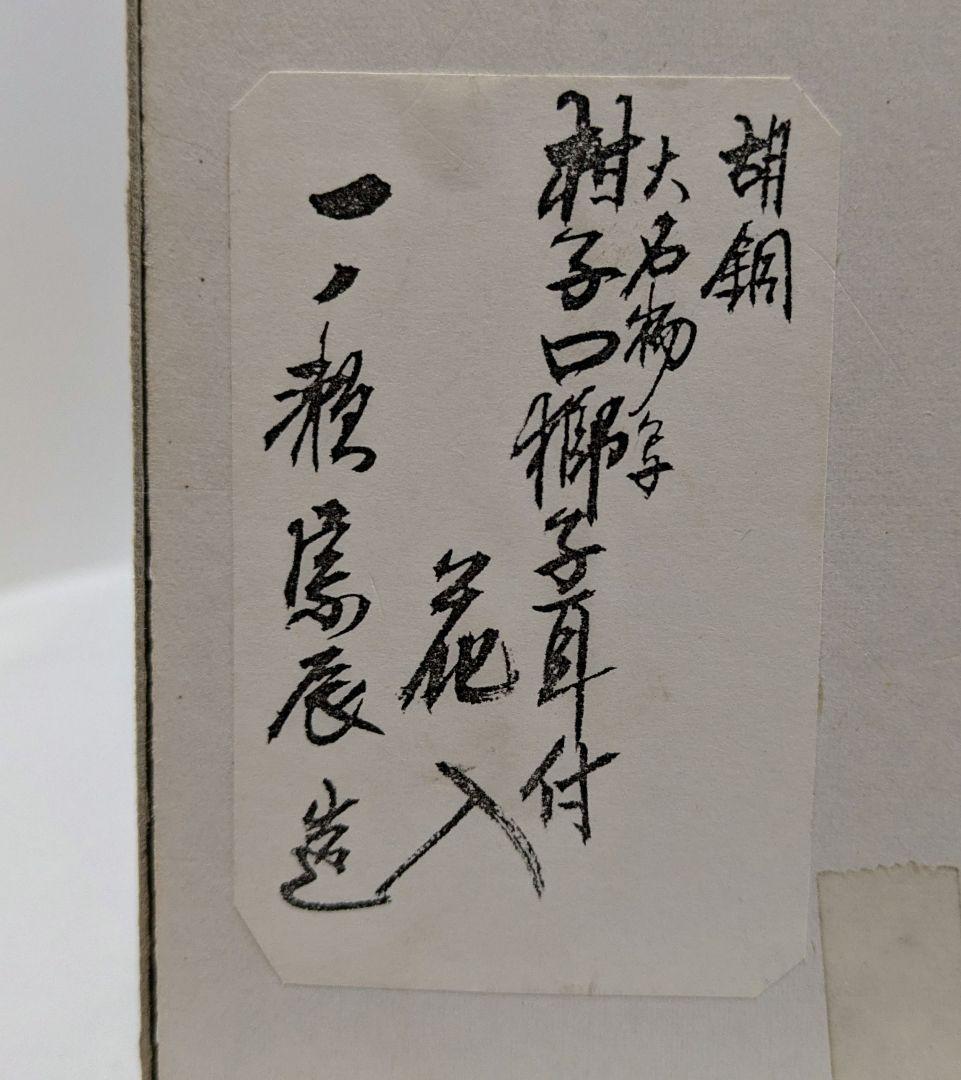 胡銅
大名物写
柑子口子耳付
花入
一ノ瀬宗辰造